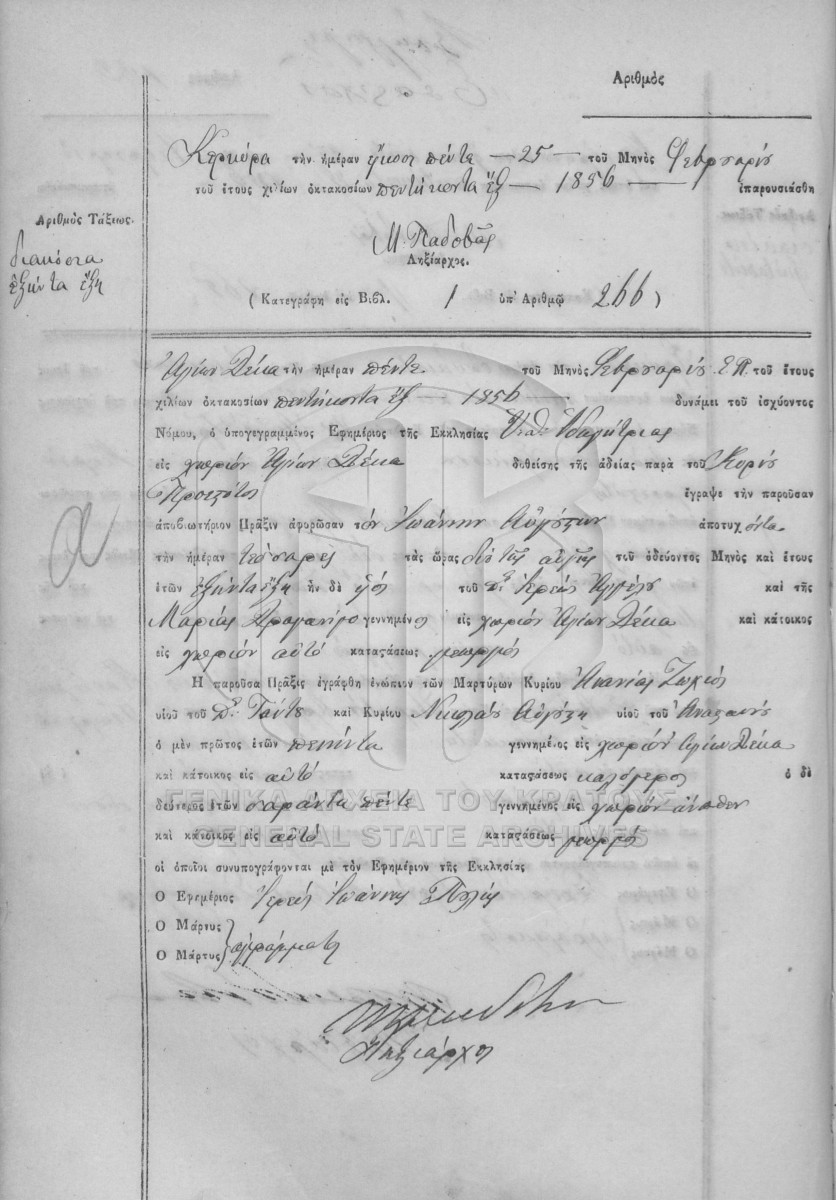 Ἀριθμὸς
Κερκύρα τὴν ἡμέραν εἴκοσι πέντε — 25 — τοῦ Μηνὸς Φεβρουαρίου
τοῦ ἔτους χιλίων ὀκτακοσίων πεντήκοντα ἕξ — 1856 — ἐπαρουσιάσθη
Ἀριθμὸς Τάξεως.
διακόσια
ἑξῆντα ἕξη
Μ. Παδοβᾶς
Ληξίαρχος.
( Κατεγράφη εἰς Βιβλ. 1 ὑπ' Ἀριθμῷ 266 )
Ἁγίων Δέκα τὴν ἡμέραν πέντε τοῦ Μηνὸς Φεβρουαρίου Ε.Π. τοῦ ἔτους
χιλίων ὀκτακοσίων πεντήκοντα ἕξ — 1856 — δυνάμει τοῦ ἰσχύοντος
Νόμου, ὁ ὑπογεγραμμένος Ἐφημέριος τῆς Ἐκκλησίας Ὑπαθ Ὁδηγήτριας
εἰς χωρίον Ἁγίων Δέκα δοθείσης τῆς ἀδείας παρὰ τοῦ Κυρίου
Πρωτ ἔγραψε τὴν παροῦσαν
ἀποβιωτήριον Πρᾶξιν ἀφορῶσαν τὸν Ἰωάννην ἀποτυχόντα
τὴν ἡμέραν τέσσαρες τὰς ὥρας δύο τῆς αὐγῆς τοῦ ὁδεύοντος Μηνὸς καὶ ἔτους
ἐτῶν ἑξῆντα ἕξη ἦν δὲ υἱὸς τοῦ Ἱερέως καὶ τῆς
Μαρίας γεννημένος εἰς χωρίον Ἁγίων Δέκα καὶ κάτοικος
εἰς χωρίον αὐτό καταστάσεως γεωργός
Ἡ παροῦσα Πρᾶξις ἐγράφθη ἐνώπιον τῶν Μαρτύρων Κυρίου Ἀνανίας
υἱοῦ τοῦ καὶ Κυρίου Νικολάου υἱοῦ τοῦ
ὁ μὲν πρῶτος ἐτῶν πενῆντα γεννημένος εἰς χωρίον Ἁγίων Δέκα
καὶ κάτοικος εἰς αὐτό καταστάσεως καλόγερος ὁ δὲ
δεύτερος ἐτῶν σαράντα πέντε γεννημένος εἰς χωρίον ἄνωθεν
καὶ κάτοικος εἰς αὐτό καταστάσεως γεωργός
οἱ ὁποῖοι συνυπογράφονται μὲ τὸν Ἐφημέριον τῆς Ἐκκλησίας
Ὁ Ἐφημέριος Ἱερεὺς Ἰωάννης
Ὁ Μάρτυς
Ὁ Μάρτυς ἀγράμματοι
Ληξίαρχος
ΓΕΝΙΚΑ ΑΡΧΕΙΑ ΤΟΥ ΚΡΑΤΟΥΣ
GENERAL STATE ARCHIVES